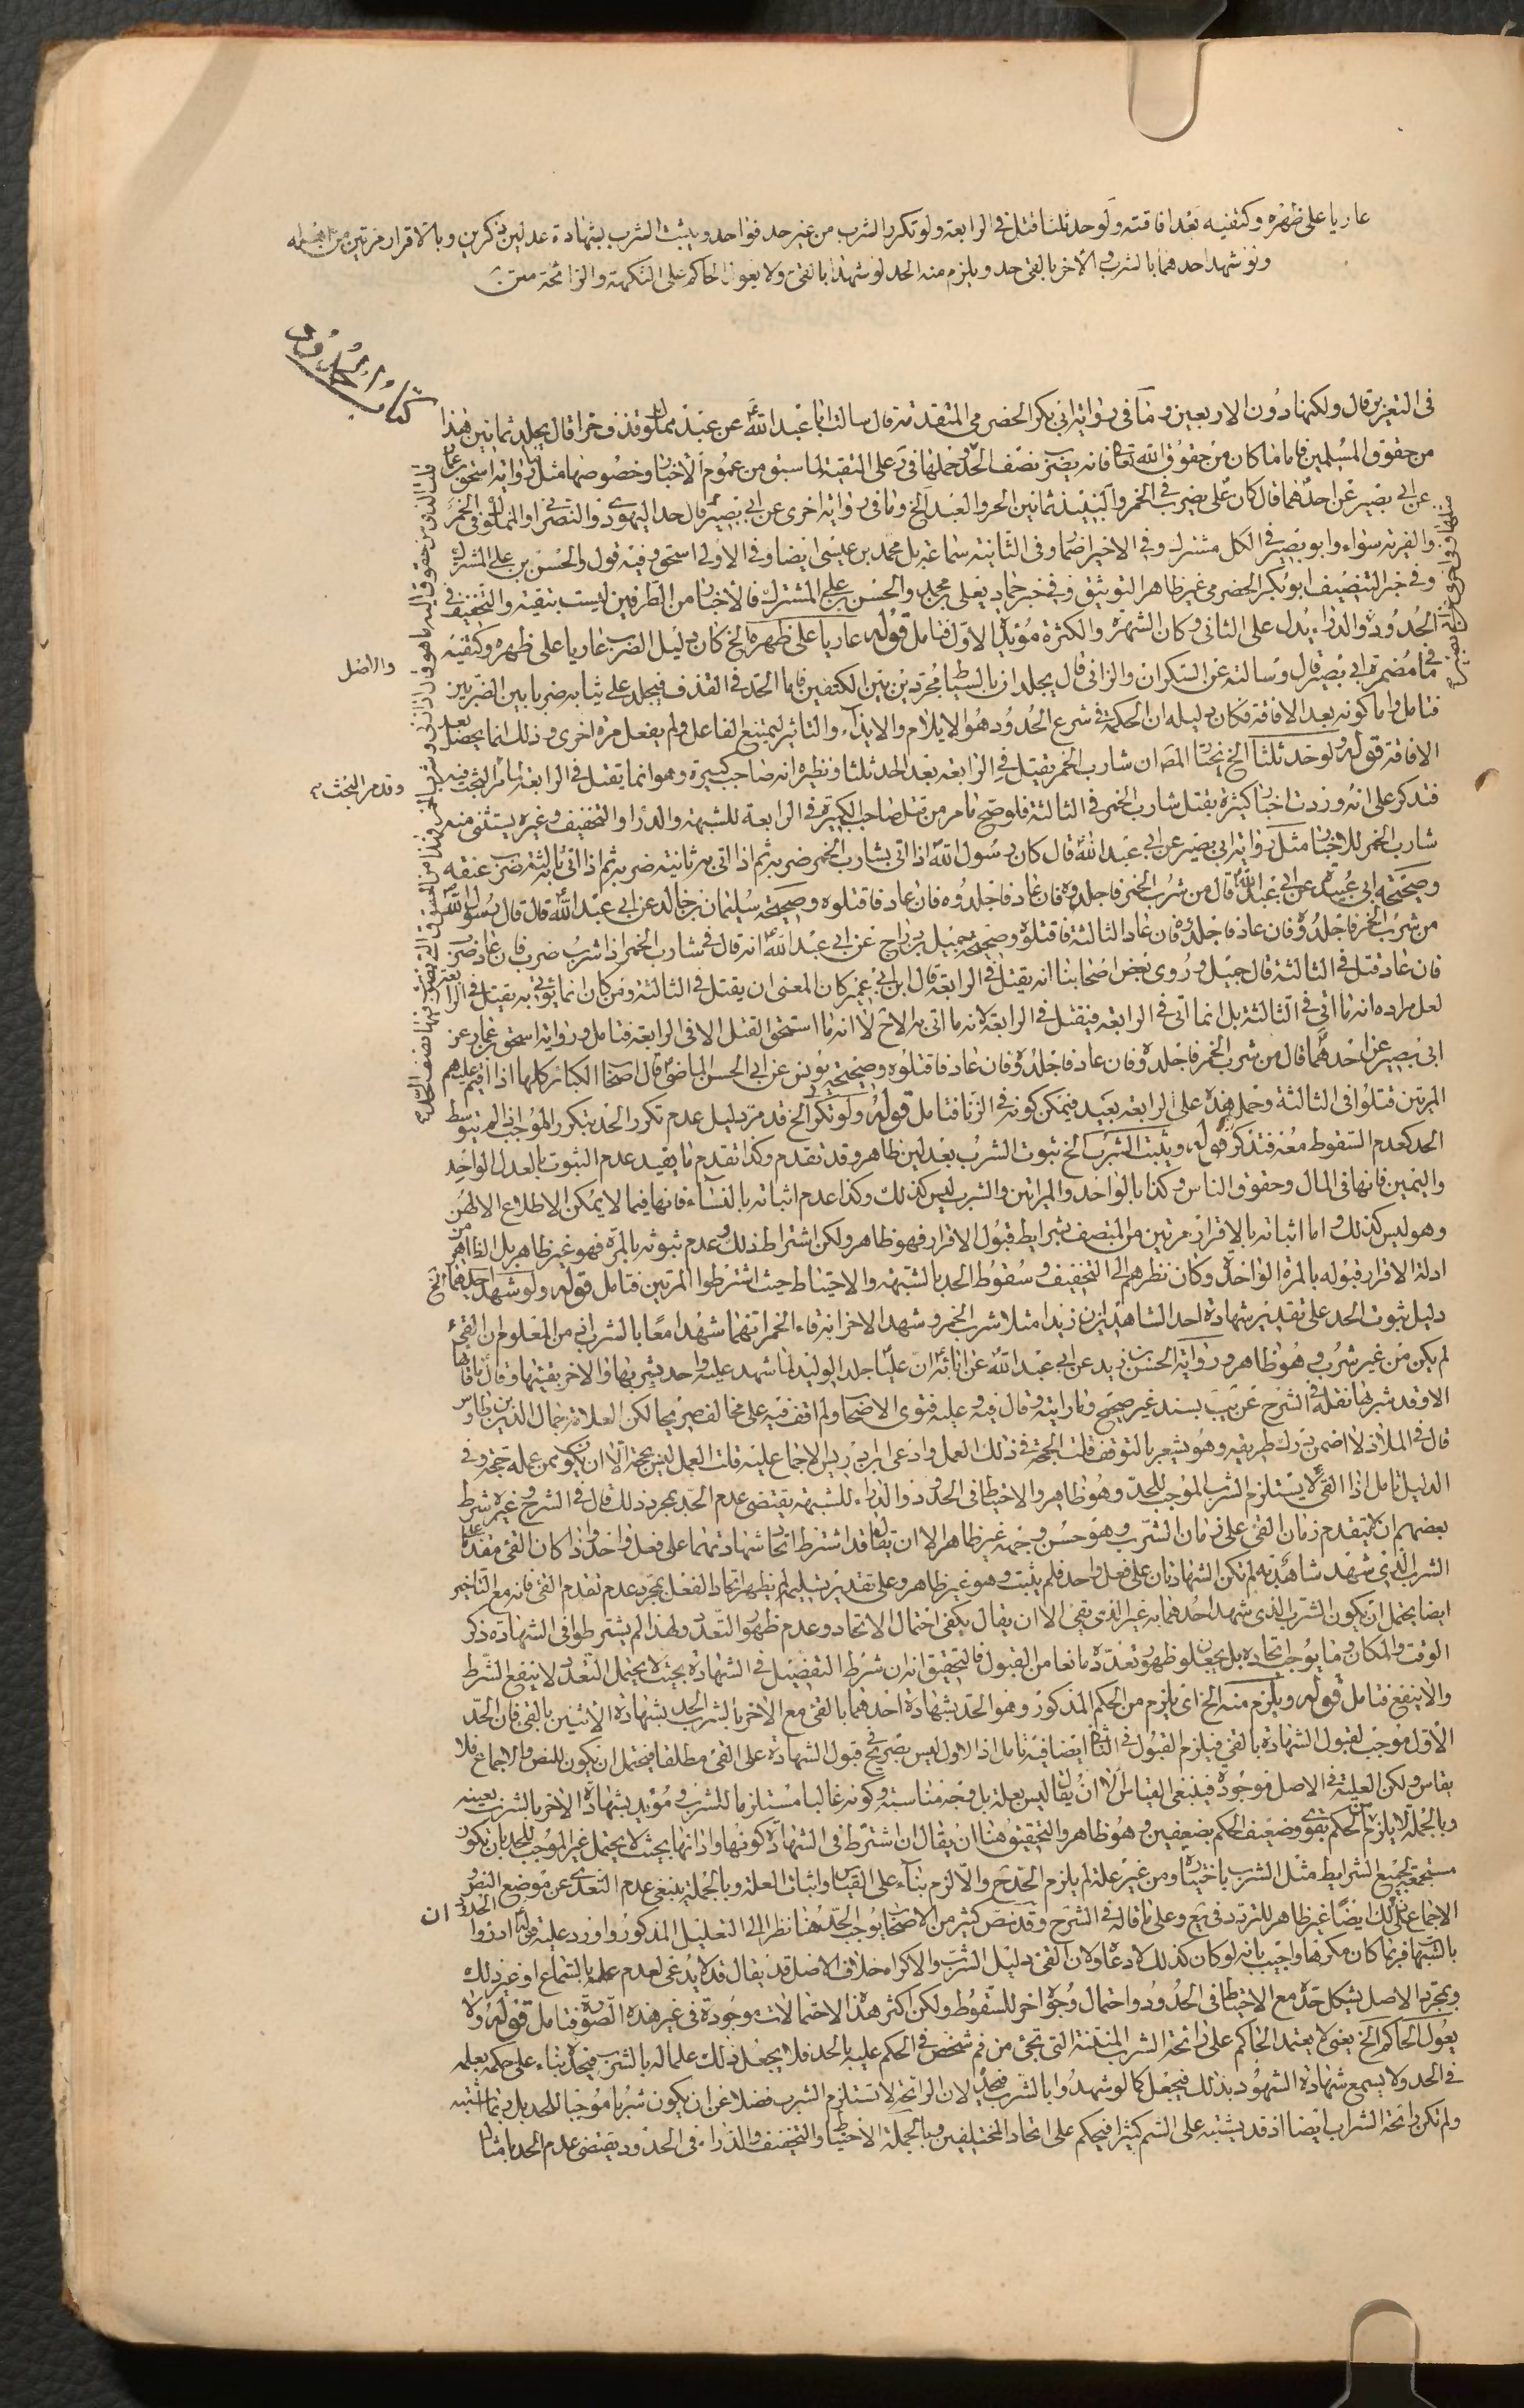 عاريا على ظهره وكتفيه بعد افاقته ولو حد ثلثا قتل في الرابعة ولو تكرر الشرب من غير حد فواحد ويثبت الشرب بشهادة عدلين ذكرين وبالاقرار مرتين من اهله
ولو شهد احدهما بالشرب والاخر بالقئ حد ويلزم منه الحد لو شهدا بالقئ ولا يعول الحاكم على النكهة والرائحة متن
كتاب الحدود
في التعزير قال ولكنها دون الاربعين وما في رواية ابي بكر الحضرمي المتقدمة قال سالت ابا عبد الله عن عبد مملوك قذف حرا قال يجلد ثمانين هذا
من حقوق المسلمين فاما ما كان من حقوق الله تعا فانه يضرب نصف الحد حملها في يب على التقية لما سبق من عموم الاخبار وخصوصها مثل رواية اسحق بن عمار
عن ابي بصير عن احدهما قال كان علي يضرب في الخمر والنبيذ ثمانين الحر والعبد الخ وما في رواية اخرى عن ابي بصير قال حد اليهودي والنصراني والمملوك في الخمر
والفرية سواء وابو بصير في الكل مشترك وفي الاخير ضما وفي الثانية سماعة بل محمد بن عيسى ايضا وفي الاولى اسحق وفيه قول والحسن بن علي المشترك
وفي خبر التنصيف ابو بكر الحضرمي غير ظاهر التوثيق وفي خبر حماد يعلى بن محمد والحسن بن علي المشترك فالاخبار من الطرفين ليست بنقية والتخفيف في
الحدود والدراء يدل على الثاني وكان الشهرة والكثرة مؤيد الاول فتامل قوله عاريا على ظهره الخ كان دليل الضرب عاريا على ظهره وكتفيه
ما في مضمرة ابي بصير قال وسالته عن السكران والزاني قال يجلدان بالسياط مجردين بين الكتفين فاما الحد في القذف فيجلد على ثيابه ضربا بين الضربين
فتامل واما كونه بعد الافاقة فكان دليله ان الحكمة في شرع الحدود هو الايلام والايذاء والتاثير ليمتنع الفاعل ولم يفعل مرة اخرى وذلك انما يحصل بعد
الافاقة قوله ولو حد ثلثا الخ يختار المص ان شارب الخمر يقتل في الرابعة بعد الحد ثلثا ونظيره انه صاحب كبيرة وهو انما يقتل في الرابعة لما مر البحث فيه
فتذكر على انه وردت اخبار كثيرة بقتل شارب الخمر في الثالثة فلو صح ما مر من قتل صاحب الكبيرة في الرابعة للشبهة والدرا والتخفيف وغيره يستثنى منه
شارب الخمر للاخبار مثل رواية ابي بصير عن ابي عبد الله قال كان رسول الله اذا اتى بشارب الخمر ضربه ثم اذا اتى به ثانية ضربه ثم اذا اتى به ثالثة ضرب عنقه
وصحيحة ابي عبيدة عن ابي عبد الله قال من شرب الخمر فاجلدوه فان عاد فاجلدوه فان عاد فاقتلوه وصحيحة سليمان بن خالد عن ابي عبد الله قال قال رسول الله
من شرب الخمر فاجلدوه فان عاد فاجلدوه فان عاد الثالثة فاقتلوه وصحيحة جميل بن دراج عن ابي عبد الله انه قال في شارب الخمر اذا شرب ضرب فان عاد ضرب
فان عاد قتل في الثالثة قال جميل وروى بعض اصحابنا انه يقتل في الرابعة قال ابن ابي عمير كان المعنى ان يقتل في الثالثة ومن كان انما يؤتى به يقتل في الرابعة
لعل مراده انه ما اتى في الثالثة بل انما اتى في الرابعة فيقتل في الرابعة لانه ما اتى به الا ح لا انه ما استحق القتل الا في الرابعة فتامل ورواية اسحق بن عمار عن
ابي بصير عن احدهما قال من شرب الخمر فاجلدوه فان عاد فاجلدوه فان عاد فاقتلوه وصحيحة يونس عن ابي الحسن الماضي قال اصحاب الكبائر كلها اذا اقيم عليهم
المرتين قتلوا في الثالثة وحمل هذه على الرابعة بعيد فيمكن كونه في الزنا فتامل قوله ولو تكرر الخ قد مر دليل عدم تكرر الحد بتكرر الموجب اذا لم يتوسط
الحد كعدم السقوط معه فتذكر قوله ويثبت الشرب الخ ثبوت الشرب بعدلين ظاهر وقد تقدم وكذا تقدم ما يفيد عدم الثبوت بالعدل الواحد
واليمين فانها في المال وحقوق الناس وكذا بالواحد والمراتين والشرب ليس كذلك وكذا عدم اثباته بالنساء فانها فيما لا يمكن الاطلاع الا لهن
وهو ليس كذلك واما اثباته بالاقرار مرتين من المتصف بشرايط قبول الاقرار فهو ظاهر ولكن اشتراط ذلك وعدم ثبوته بالمرة فهو غير ظاهر بل الظاهر من
ادلة الاقرار قبوله بالمرة الواحدة وكان نظرهم الى التخفيف وسقوط الحد بالشبهة والاحتياط حيث اشترطوا المرتين فتامل قوله ولو شهد احدهما الخ
دليل ثبوت الحد على تقدير شهادة احد الشاهدين ان زيدا مثلا شرب الخمر وشهد الاخر انه قاء الخمر انهما شهدا معا بالشرب اذ من المعلوم ان القئ
لم يكن من غير شرب وهو ظاهر ورواية الحسن بن زيد عن ابي عبد الله عن ابائه ان عليا جلد الوليد لما شهد عليه واحد بشربها والاخر بقيئها وقال ما قائها
الا وقد شربها نقله في الشرح عن يب بسند غير صحيح وما رايته وقال فيه وعليه فتوى الاصحاب ولم اقف فيه على مخالف صريحا لكن العلامة جمال الدين بن طاوس
قال في الملاذ لا اضمن درك طريقه وهو يشعر بالتوقف قلت الحجة في ذلك العمل وادعى ابن ادريس الاجماع عليه قلت العمل ليس بحجة الا ان يكون ممن عمله حجة وفي
الدليل تامل اذا القئ لا يستلزم الشرب الموجب للحد وهو ظاهر والاحتياط في الحدود والدراء للشبهة يقتضي عدم الحد بمجرد ذلك قال في الشرح وغيره شرط
بعضهم ان لا يتقدم زمان القئ على زمان الشرب وهو حسن وجهه غير ظاهر الا ان يقال قد اشترط اتحاد شهادتهما على فعل واحد واذا كان القئ مقدما على
الشرب الذي شهد شاهد به لم تكن الشهادتان على فعل واحد فلم يثبت وهو غير ظاهر وعلى تقدير تسليمه لم يظهر اتحاد الفعل بمجرد عدم تقدم القئ فانه مع التاخير
ايضا يحتمل ان يكون الشرب الذي شهد احدهما به غير الذي يقئ الا ان يقال يكفي احتمال الاتحاد وعدم ظهور التعدد ولهذا لم يشترطوا في الشهادة ذكر
الوقت والمكان وما يوجب اتحاده بل يجعلون ظهور تعدده مانعا من القبول فالتحقيق انه ان شرط التفصيل في الشهادة بحيث لا يحتمل التعدد لا ينفع الشرط
والا ينفع فتامل قوله ويلزم منه الخ اي يلزم من الحكم المذكور وهو الحد بشهادة احدهما بالقئ مع الاخر بالشرب الحد بشهادة الاثنين بالقئ فان الحد
الاول موجب لقبول الشهادة بالقئ فيلزم القبول في الثاني ايضا فيه تامل اذ الاول ليس بصريح في قبول الشهادة على القئ مطلقا فيحتمل ان يكون للنص والاجماع فلا
يقاس ولكن العلية في الاصل موجودة فينبغي القياس الا ان يقال ليس بعلة بل وجه مناسبة وكونه غالبا مستلزما للشرب ومؤيد بشهادة الاخر بالشرب بعينه
وبالجملة لا يلزم من الحكم بقوي وضعيف الحكم بضعيفين وهو ظاهر والتحقيق هنا ان يقال ان اشترط في الشهادة كونها وادائها بحيث لا يحتمل غير الموجب للحد بان تكون
مستجمعة لجميع الشرايط مثل الشرب باختياره ومن غير علة لم يلزم الحد ح والا لزم بناء على القياس واثبات العلة وبالجملة ينبغي عدم التعدي عن موضع النص و
الاجماع على ذلك ايضا غير ظاهر للتردد في يع وعلى ما قاله في الشرح وقد نص كثير من الاصحاب بوجوب الحد هنا نظرا الى التعليل المذكور واورد عليه قوله ادرؤا الحدود
بالشبهات فربما كان مكرها واجيب بانه لو كان كذلك لادعاه ولان القئ دليل الشرب والاكراه خلاف الاصل قد يقال قد لا يدعي لعدم علمه بالسماع او غير ذلك
وبمجرد الاصل يشكل حده مع الاحتياط في الحدود واحتمال وجوه اخر للسقوط ولكن اكثر هذه الاحتمالات موجودة في غير هذه الصورة فتامل قوله ولا
يعول الحاكم الخ يعني لا يعتمد الحاكم على رائحة الشرب المنتنة التي تجئ من فم شخص في الحكم عليه بالحد فلا يجعل ذلك علما له بالشرب فيحده بناء على حكمه بعلمه
في الحد ولا يسمع شهادة الشهود بذلك فيجعل كما لو شهدوا بالشرب فيحد لان الرائحة لا تستلزم الشرب فضلا عن ان يكون شربا موجبا للحد بل ربما تشتبه
ولم تكن رائحة الشراب ايضا اذ قد يشتبه على الشم كثيرا فيحكم على اتحاد المختلفين وبالجملة الاحتياط والتخفيف والدراء في الحدود يقتضي عدم الحد بامثاله
والاصل
وقد مر البحث